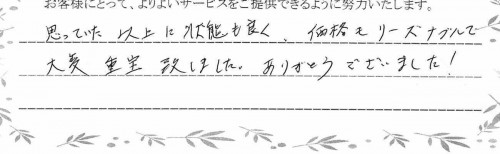 お客様にとって、よりよいサービスをご提供できるように努力いたします。
思っていた以上に状態も良く、価格もリーズナブルで
大変重宝致しました。ありがとうございました！